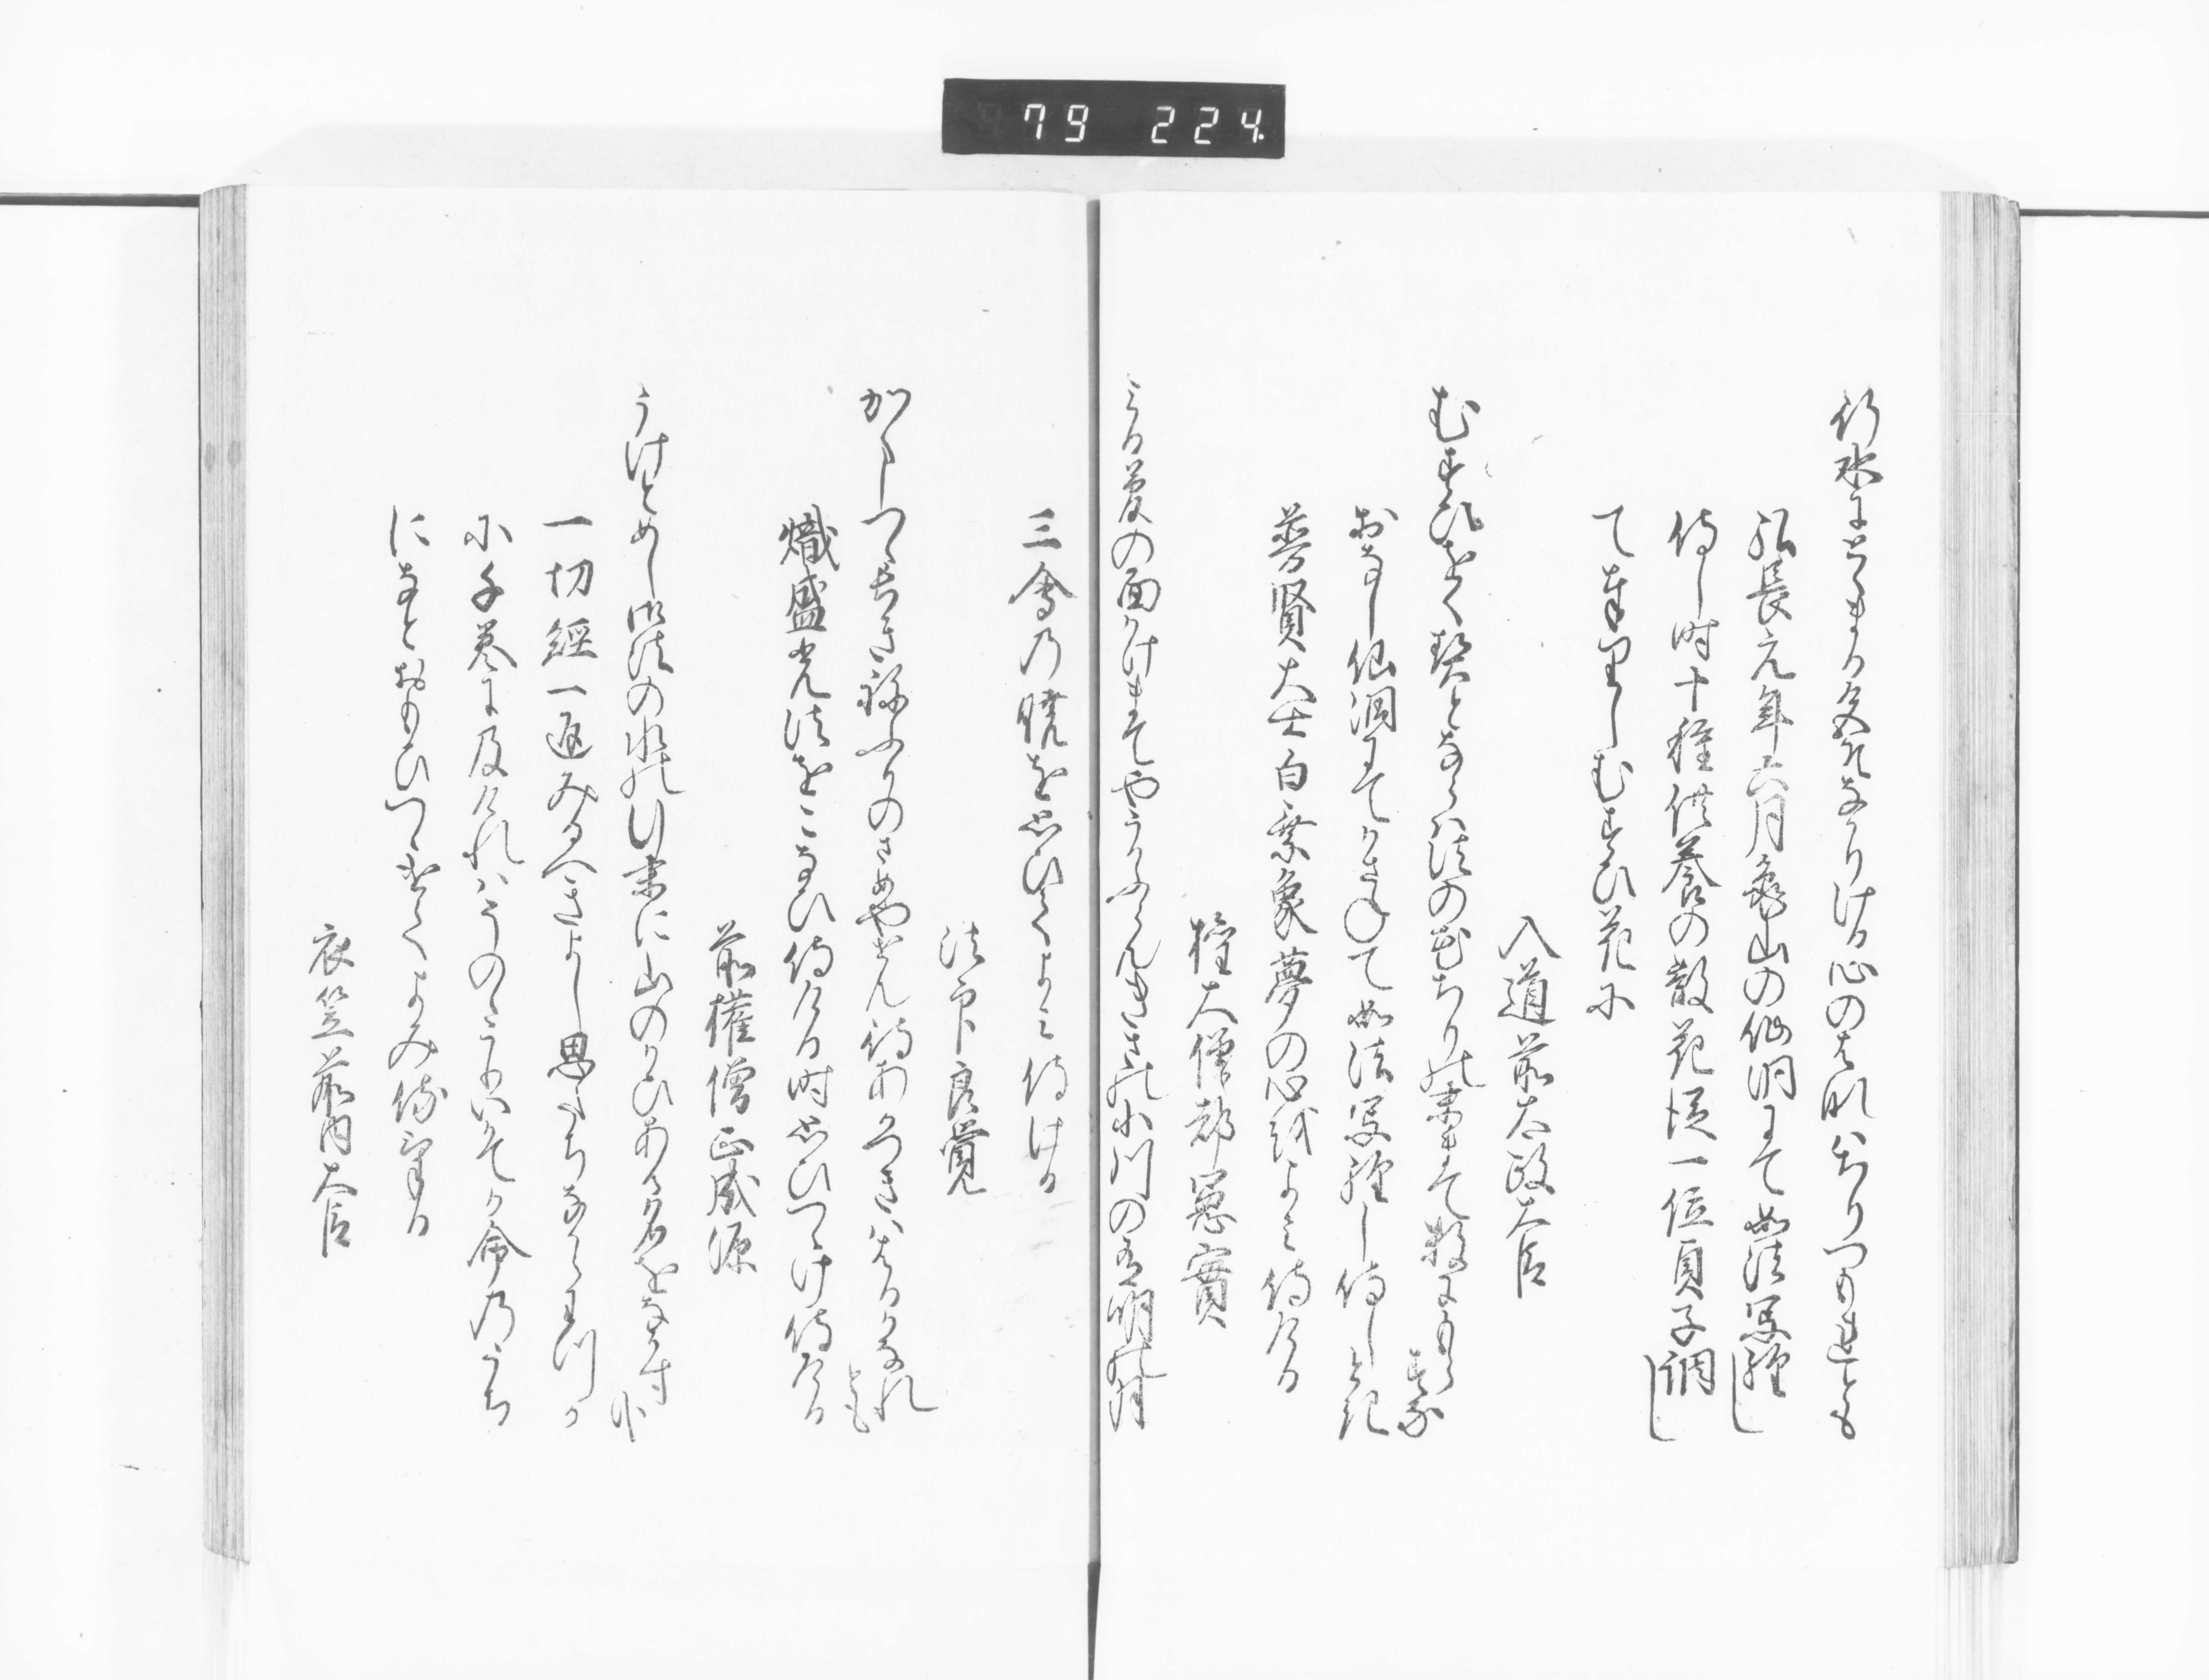 79 224
行水にとまる色そなかりける心のはな八ちりつもれとも
弘長元年六月亀山の仙洞にて如法写経し
侍し時十種供養の散花従一位貞子調し
てたてまつりしむすひ花に
入道前太政大臣
むすひをく契となら八法の花ちりの末まて数にもらすな
おなし仙洞にてかさねて如法写経し侍しとき
普賢大士白象夢の心をよみ侍ける
権大僧都憲實
みる夢の面かけまてやうかふらんきさの小川の有明の月
三會乃暁を思ひてよみ侍ける
法印良覚
かくしつゝ長きねふりのさめやせん待あかつき八はるかなれとも
熾盛光法をこなひ侍ける時思ひつゝけ侍ける
前権僧正成源
うけとめし御法の水の行末に山のかひある名をなかすかな
一切經一返みるへきよし思たちなからわつか
に千巻に及けれ八うのこりいかてか命乃うち
になとおもひつゝけてよみ侍ける
衣笠前内大臣